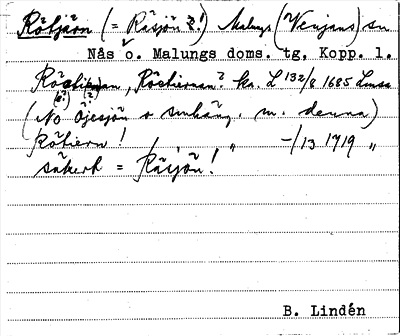 Rötjärn (= Räsjön ?!) Malungs (Venjans) sn
Nås o. Malungs doms. tg, Kopp. l.
Röctiernan, Röctiernan? ka. L 132/8 1685 Lmsa
(?)
(No Öjesjön o smhäng. m. denna)
Rötiern! " -/13 1719 "
säkert = Räsjön!
B. Lindén